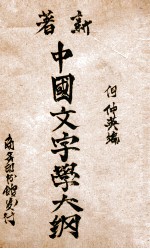 新著
中國文字學大綱
何仲英編
商務印書館發行